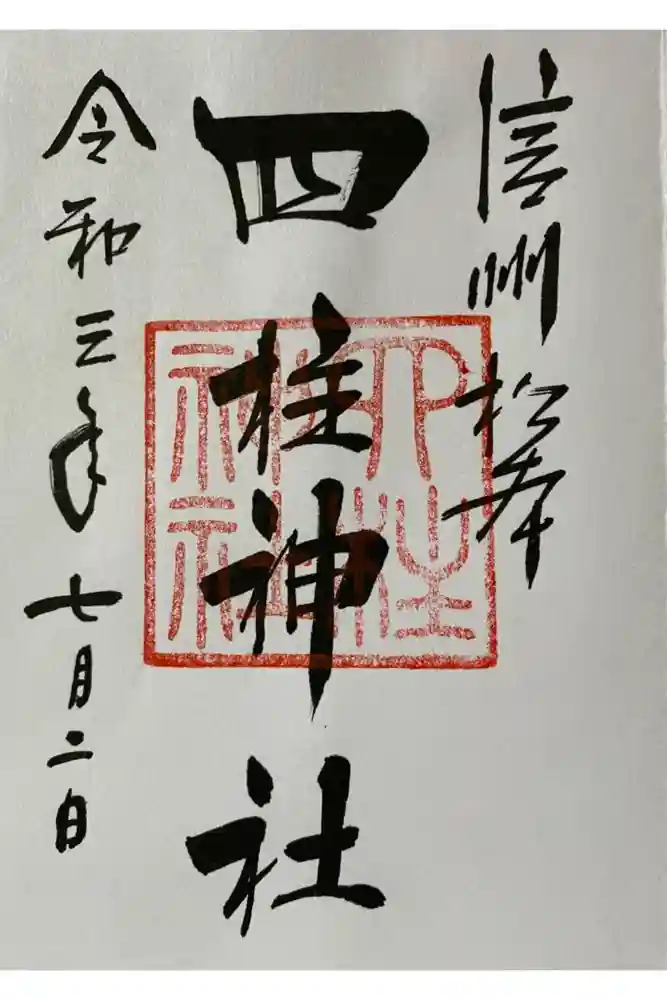 信州松本
四柱神社
令和三年七月二日
四柱
神社